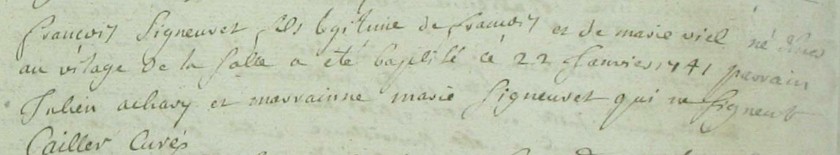 françois Signeuret fils legitime de françois et de marie viel né hier
au vilage de la Salle a été baptisé ce 22 Janvier 1741 parrain
Julien achary et marrainne marie Signeuret qui ne Signent
Cailler Curés